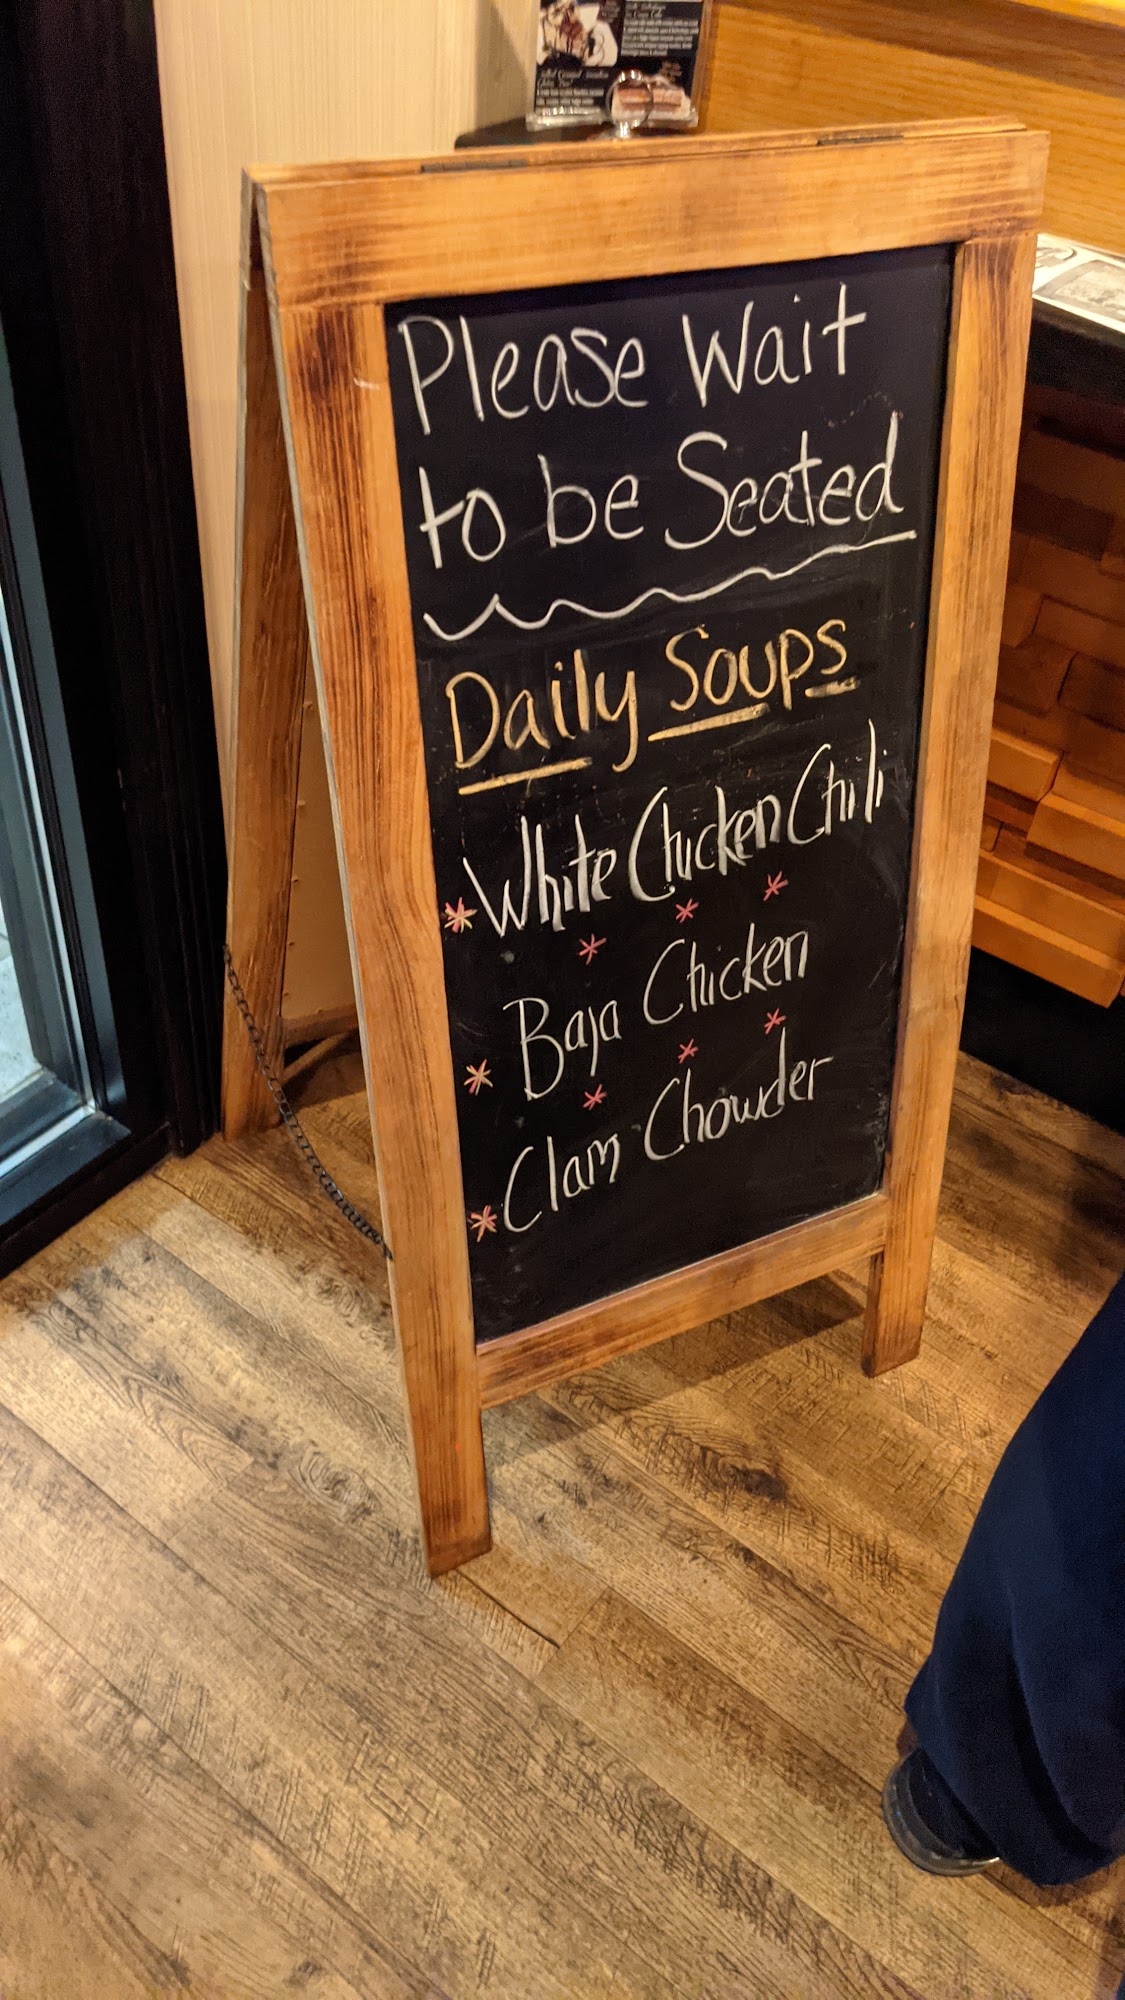 Please Wait
to be Seated
Daily Soups
* White Chicken Chili
* * *
* Baja Chicken
* * *
* Clam Chowder